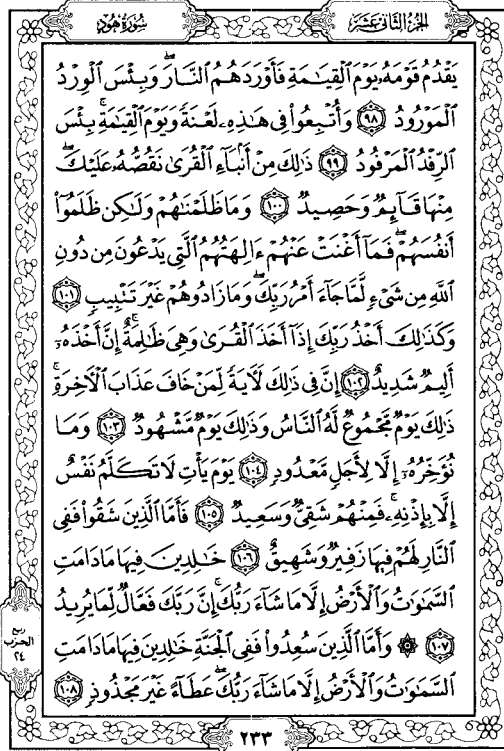 الجزء الثاني عشر
سورة هود
يَقْدُمُ قَوْمَهُۥ يَوْمَ ٱلْقِيَٰمَةِ فَأَوْرَدَهُمُ ٱلنَّارَ ۖ وَبِئْسَ ٱلْوِرْدُ
ٱلْمَوْرُودُ ٩٨ وَأُتْبِعُوا۟ فِى هَٰذِهِۦ لَعْنَةً وَيَوْمَ ٱلْقِيَٰمَةِ ۚ بِئْسَ
ٱلرِّفْدُ ٱلْمَرْفُودُ ٩٩ ذَٰلِكَ مِنْ أَنۢبَآءِ ٱلْقُرَىٰ نَقُصُّهُۥ عَلَيْكَ ۖ
مِنْهَا قَآئِمٌ وَحَصِيدٌ ١٠٠ وَمَا ظَلَمْنَٰهُمْ وَلَٰكِن ظَلَمُوٓا۟
أَنفُسَهُمْ ۖ فَمَآ أَغْنَتْ عَنْهُمْ ءَالِهَتُهُمُ ٱلَّتِى يَدْعُونَ مِن دُونِ
ٱللَّهِ مِن شَىْءٍ لَّمَّا جَآءَ أَمْرُ رَبِّكَ ۖ وَمَا زَادُوهُمْ غَيْرَ تَتْبِيبٍ ١٠١
وَكَذَٰلِكَ أَخْذُ رَبِّكَ إِذَآ أَخَذَ ٱلْقُرَىٰ وَهِىَ ظَٰلِمَةٌ ۚ إِنَّ أَخْذَهُۥٓ
أَلِيمٌ شَدِيدٌ ١٠٢ إِنَّ فِى ذَٰلِكَ لَءَايَةً لِّمَنْ خَافَ عَذَابَ ٱلْءَاخِرَةِ ۚ
ذَٰلِكَ يَوْمٌ مَّجْمُوعٌ لَّهُ ٱلنَّاسُ وَذَٰلِكَ يَوْمٌ مَّشْهُودٌ ١٠٣ وَمَا
نُؤَخِّرُهُۥٓ إِلَّا لِأَجَلٍ مَّعْدُودٍ ١٠٤ يَوْمَ يَأْتِ لَا تَكَلَّمُ نَفْسٌ
إِلَّا بِإِذْنِهِۦ ۚ فَمِنْهُمْ شَقِىٌّ وَسَعِيدٌ ١٠٥ فَأَمَّا ٱلَّذِينَ شَقُوا۟ فَفِى
ٱلنَّارِ لَهُمْ فِيهَا زَفِيرٌ وَشَهِيقٌ ١٠٦ خَٰلِدِينَ فِيهَا مَا دَامَتِ
ٱلسَّمَٰوَٰتُ وَٱلْأَرْضُ إِلَّا مَا شَآءَ رَبُّكَ ۚ إِنَّ رَبَّكَ فَعَّالٌ لِّمَا يُرِيدُ
١٠٧ ۞ وَأَمَّا ٱلَّذِينَ سُعِدُوا۟ فَفِى ٱلْجَنَّةِ خَٰلِدِينَ فِيهَا مَا دَامَتِ
ٱلسَّمَٰوَٰتُ وَٱلْأَرْضُ إِلَّا مَا شَآءَ رَبُّكَ ۖ عَطَآءً غَيْرَ مَجْذُوذٍ ١٠٨
ربع
الحزب
٢٤
٢٣٣